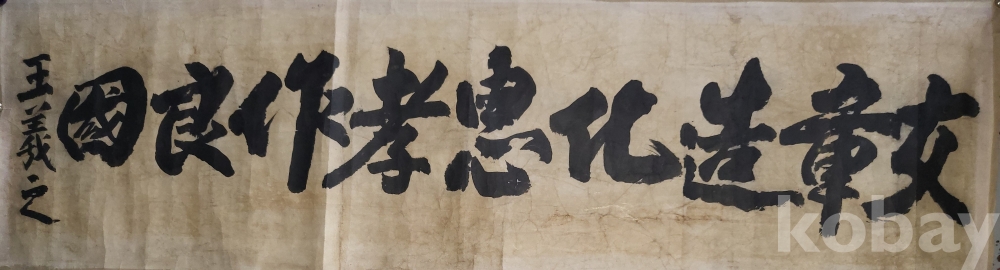 文章造化惠孝作良國
王羲之
kobay